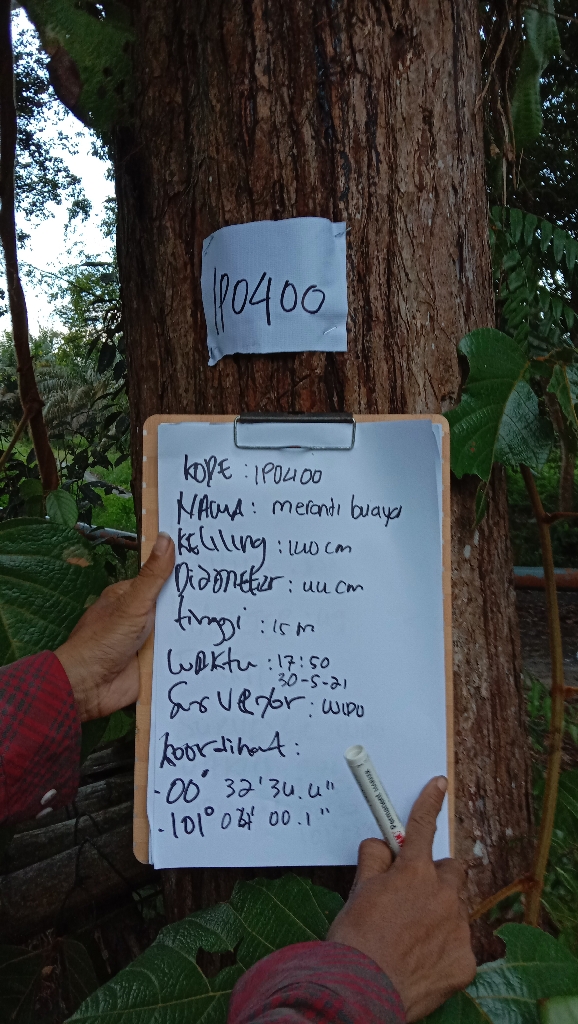 IP0400
KODE : IP0400
NAMA : meranti buaya
Keliling : 140 cm
Diameter : 44 cm
tinggi : 15 m
Waktu : 17:50
30-5-21
Surveyor : WIDO
Koordinat :
- 00° 32' 34.4"
- 101° 00.1"
Permanent Marker